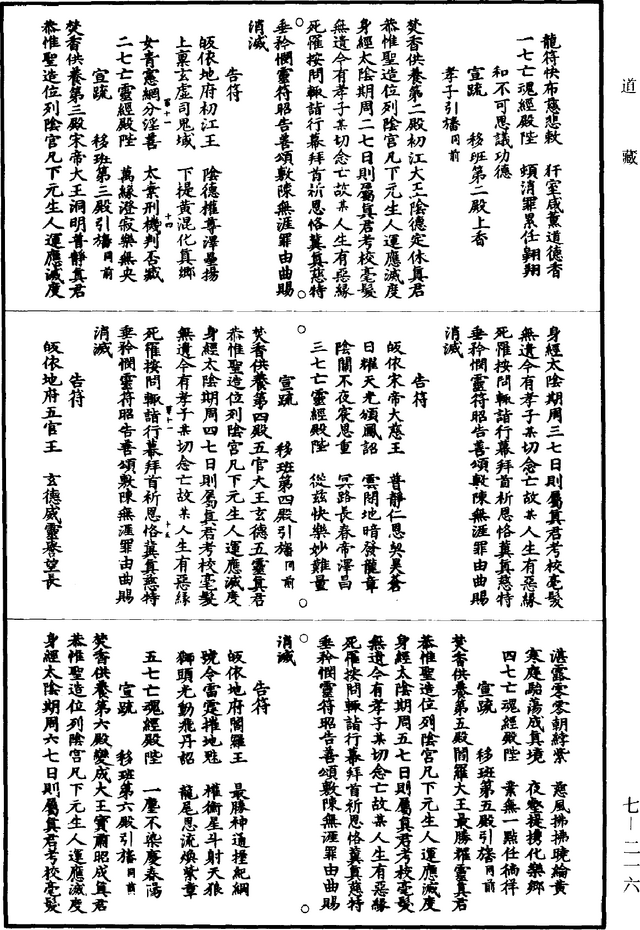 道藏
龍符快布慈悲敕　犴室咸熏道德香
一七亡魂經殿陛　頓消罪累任翱翔
和不可思議功德
宣疏　移班第二殿上香
孝子引旛同前
焚香供養第二殿初江大王陰德定休真君
恭惟聖造位列陰宮凡下元生人運應滅度
身經太陰期周二七日則屬真君考校毫髮
無遺今有孝子某切念亡故某人生有惡緣
死罹按問輒詣行幕拜首祈恩恪冀真慈特
垂矜憫靈符昭告善頌敷陳無涯罪由曲賜
消滅
告符
皈依地府初江王　陰德權尊澤壘揚
上稟玄虛司鬼域　下提黃混化真鄉
女青憲綱分淫善　太素刑機判否臧
二七亡靈經殿陛　萬緣澄寂樂無央
宣疏　移班第三殿引旛同前
焚香供養第三殿宋帝大王洞明普靜真君
恭惟聖造位列陰宮凡下元生人運應滅度
身經太陰期周三七日則屬真君考校毫髮
無遺今有孝子某切念亡故某人生有惡緣
死罹按問輒詣行幕拜首祈恩恪冀真慈特
垂矜憫靈符昭告善頌敷陳無涯罪由曲賜
消滅
告符
皈依宋帝大慈王　普靜仁恩契昊蒼
日耀天光頒鳳詔　雲開地暗發龍章
陰關不夜宸恩重　冥路長春帝澤昌
三七亡靈經殿陛　從茲快樂妙難量
宣疏　移班第四殿引旛同前
焚香供養第四殿五官大王玄德五靈真君
恭惟聖造位列陰宮凡下元生人運應滅度
身經太陰期周四七日則屬真君考校毫髮
無遺今有孝子某切念亡故某人生有惡緣
死罹按問輒詣行幕拜首祈恩恪冀真慈特
垂矜憫靈符昭告善頌敷陳無涯罪由曲賜
消滅
告符
皈依地府五官王　玄德威靈眷望長
湛露零零朝綷紫　慈風拂拂曉綸黃
寒庭駘蕩成真境　夜壑提攜化樂鄉
四七亡魂經殿陛　業無一點任徜徉
宣疏　移班第五殿引旛同前
焚香供養第五殿閻羅大王最勝耀靈真君
恭惟聖造位列陰宮凡下元生人運應滅度
身經太陰期周五七日則屬真君考校毫髮
無遺今有孝子某切念亡故某人生有惡緣
死罹按問輒詣行幕拜首祈恩恪冀真慈特
垂矜憫靈符昭告善頌敷陳無涯罪由曲賜
消滅
告符
皈依地府閻羅王　最勝神通撞紀綱
號令雷霆摧地㐫　權衡星斗射天狼
獅頭光動飛丹詔　龍尾恩流煥紫章
五七亡魂經殿陛　一塵不染慶春陽
宣疏　移班第六殿引旛同前
焚香供養第六殿變成大王寶肅昭成真君
恭惟聖造位列陰宮凡下元生人運應滅度
身經太陰期周六七日則屬真君考校毫髮
七—二一六